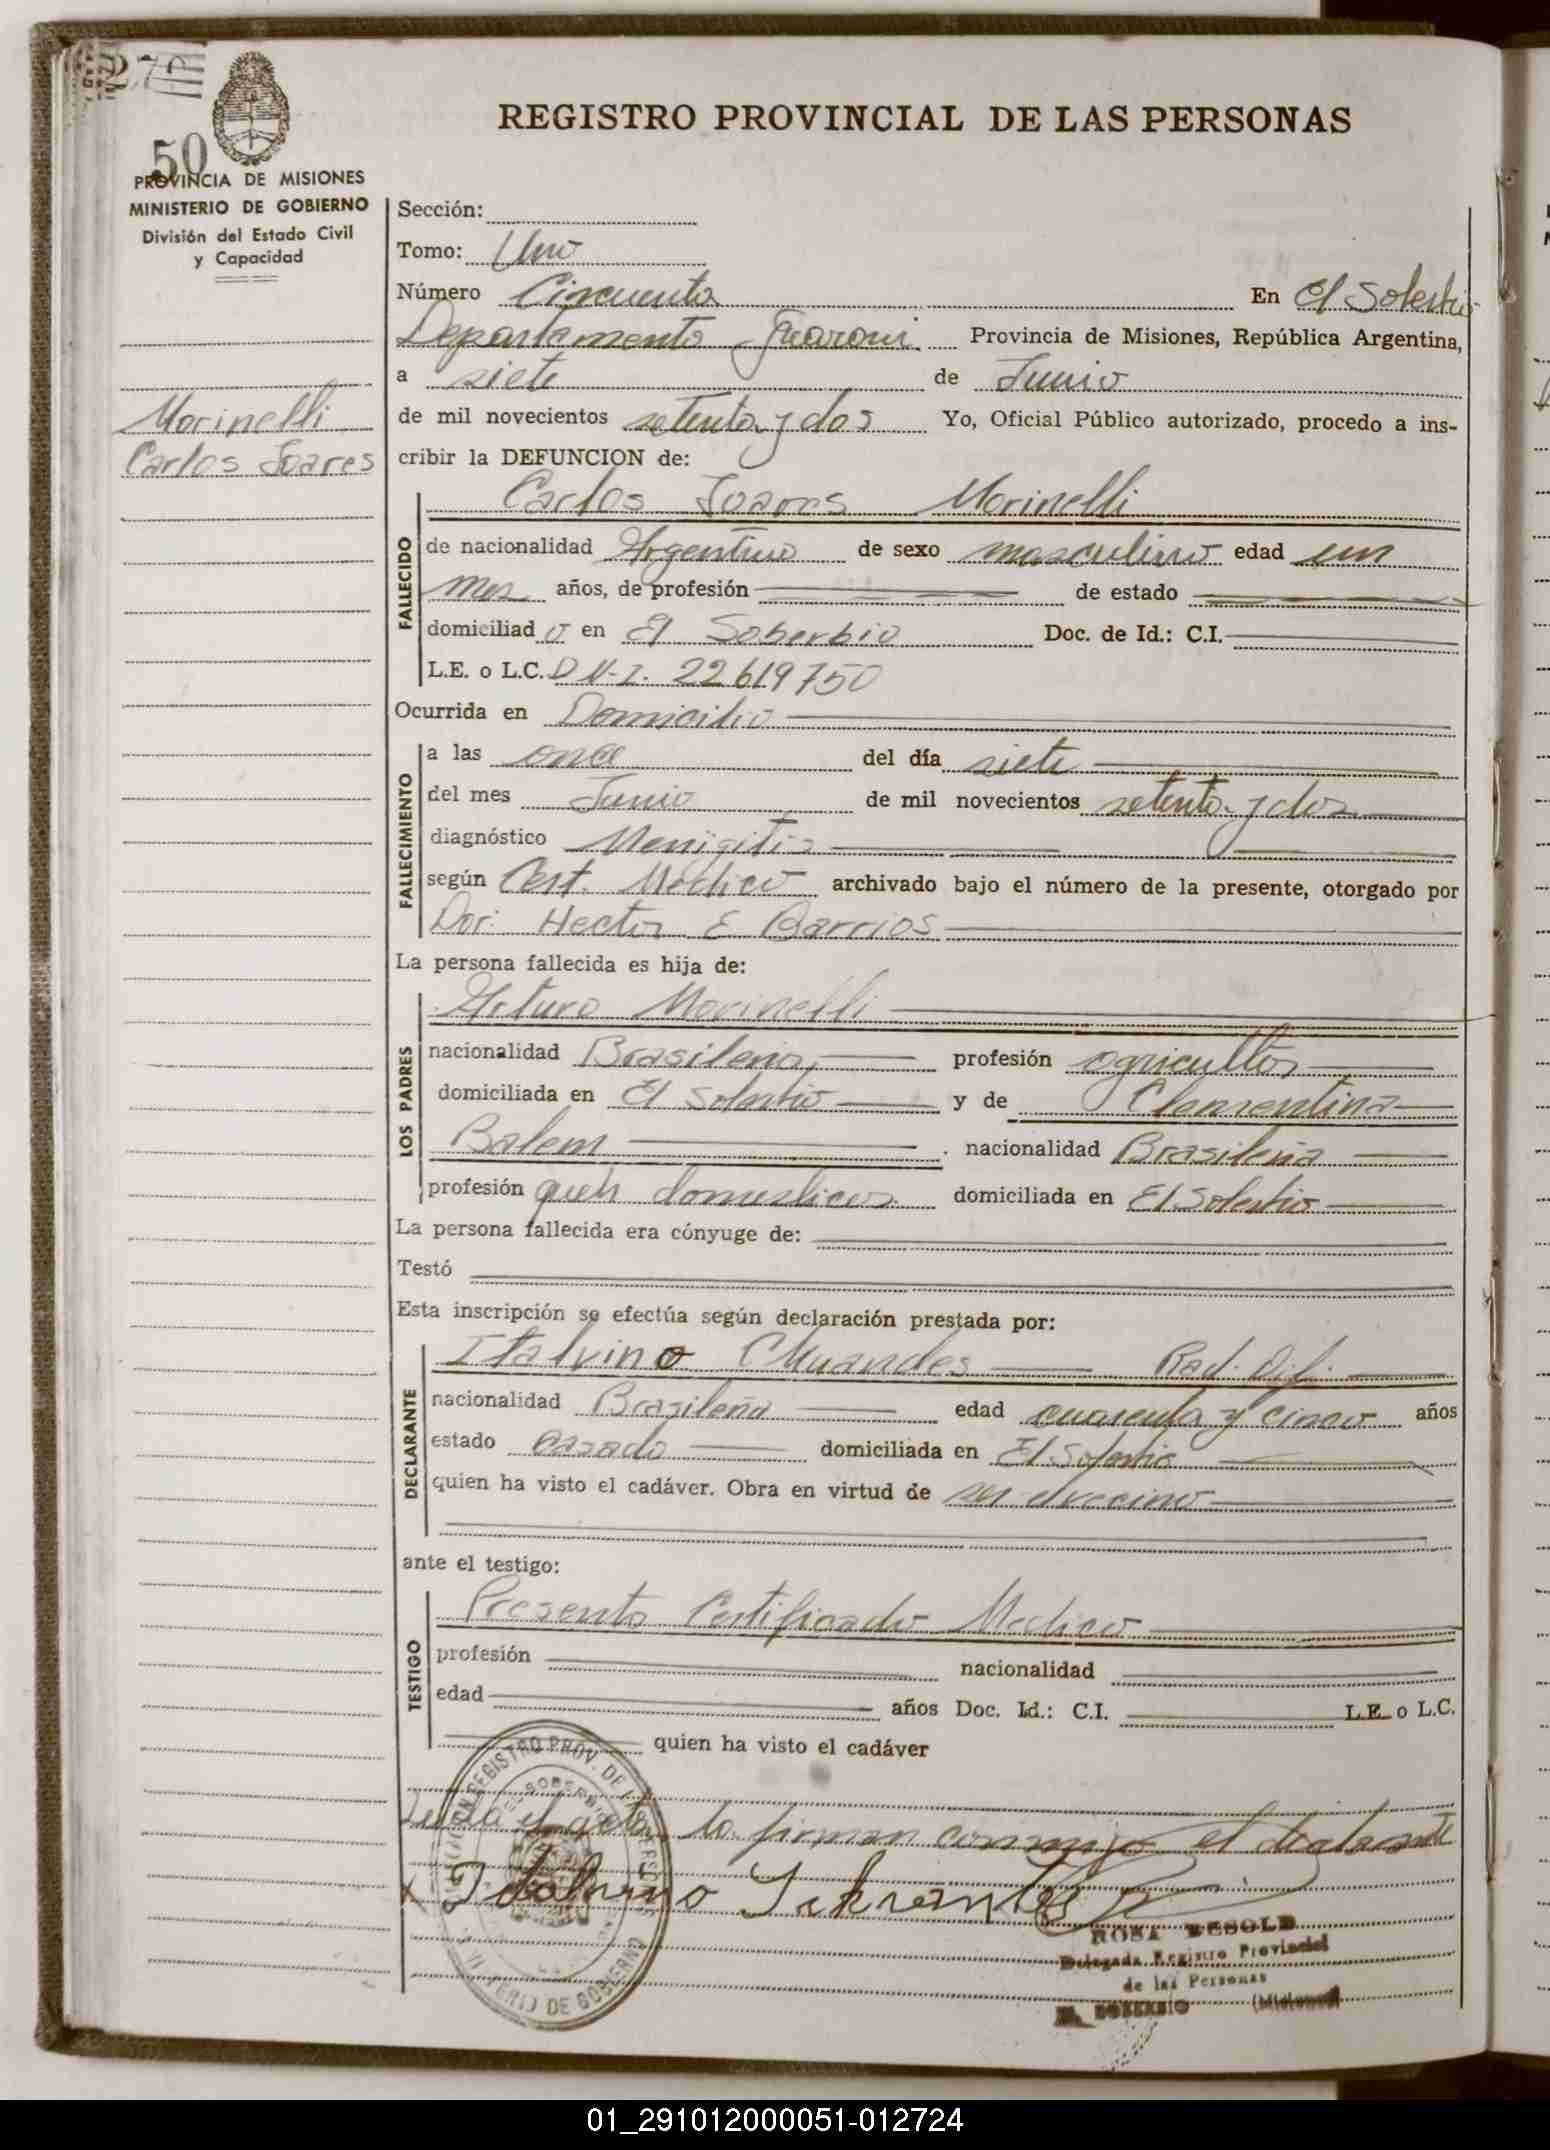 27
50
PROVINCIA DE MISIONES
MINISTERIO DE GOBIERNO
División del Estado Civil
y Capacidad
Morinelli
Carlos Soares
REGISTRO PROVINCIAL DE LAS PERSONAS
Sección:
Tomo: Uno
Número Cincuenta En El Soberbio
Departamento Guarani Provincia de Misiones, República Argentina,
a siete de Junio
de mil novecientos setenta y dos Yo, Oficial Público autorizado, procedo a ins-
cribir la DEFUNCION de:
FALLECIDO
Carlos Soares Morinelli
de nacionalidad Argentino de sexo masculino edad un
mes años, de profesión de estado
domiciliad o en El Soberbio Doc. de Id.: C.I.
L.E. o L.C. D N.I. 22619750
Ocurrida en Domicilio
FALLECIMIENTO
a las once del día siete
del mes Junio de mil novecientos setenta y dos
diagnóstico Menigitis
según Cert. Médico archivado bajo el número de la presente, otorgado por
Dor: Hector E Barrios
La persona fallecida es hija de:
LOS PADRES
Arturo Morinelli
nacionalidad Brasileña profesión agricultor
domiciliada en El Soberbio y de Clementina
Balem nacionalidad Brasileña
profesión queh domesticos domiciliada en El Soberbio
La persona fallecida era cónyuge de:
Testó
Esta inscripción se efectúa según declaración prestada por:
DECLARANTE
Italvino Rad.
nacionalidad Brasileña edad cuarenta y cinco años
estado casado domiciliada en El Soberbio
quien ha visto el cadáver. Obra en virtud de ser vecino
ante el testigo:
TESTIGO
Presento Certificado Medico
profesión nacionalidad
edad años Doc. Id.: C.I. L.E. o L.C.
quien ha visto el cadáver
Leida el acta, la firman conmigo el declarante
REGISTRO PROV. DE LAS PERSONAS
EL SOBERBIO
MINISTERIO DE GOBIERNO
ROSA BESOLD
Delegada Registro Provincial
de las Personas
EL SOBERBIO (Misiones)
01_291012000051-012724